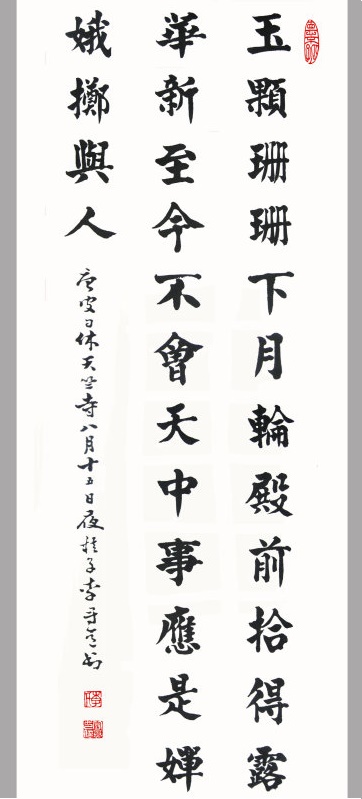 玉顆珊珊下月輪殿前拾得露
華新至今不會天中事應是嬋
娥擲與人
唐皮日休天竺寺八月十五日夜桂子李